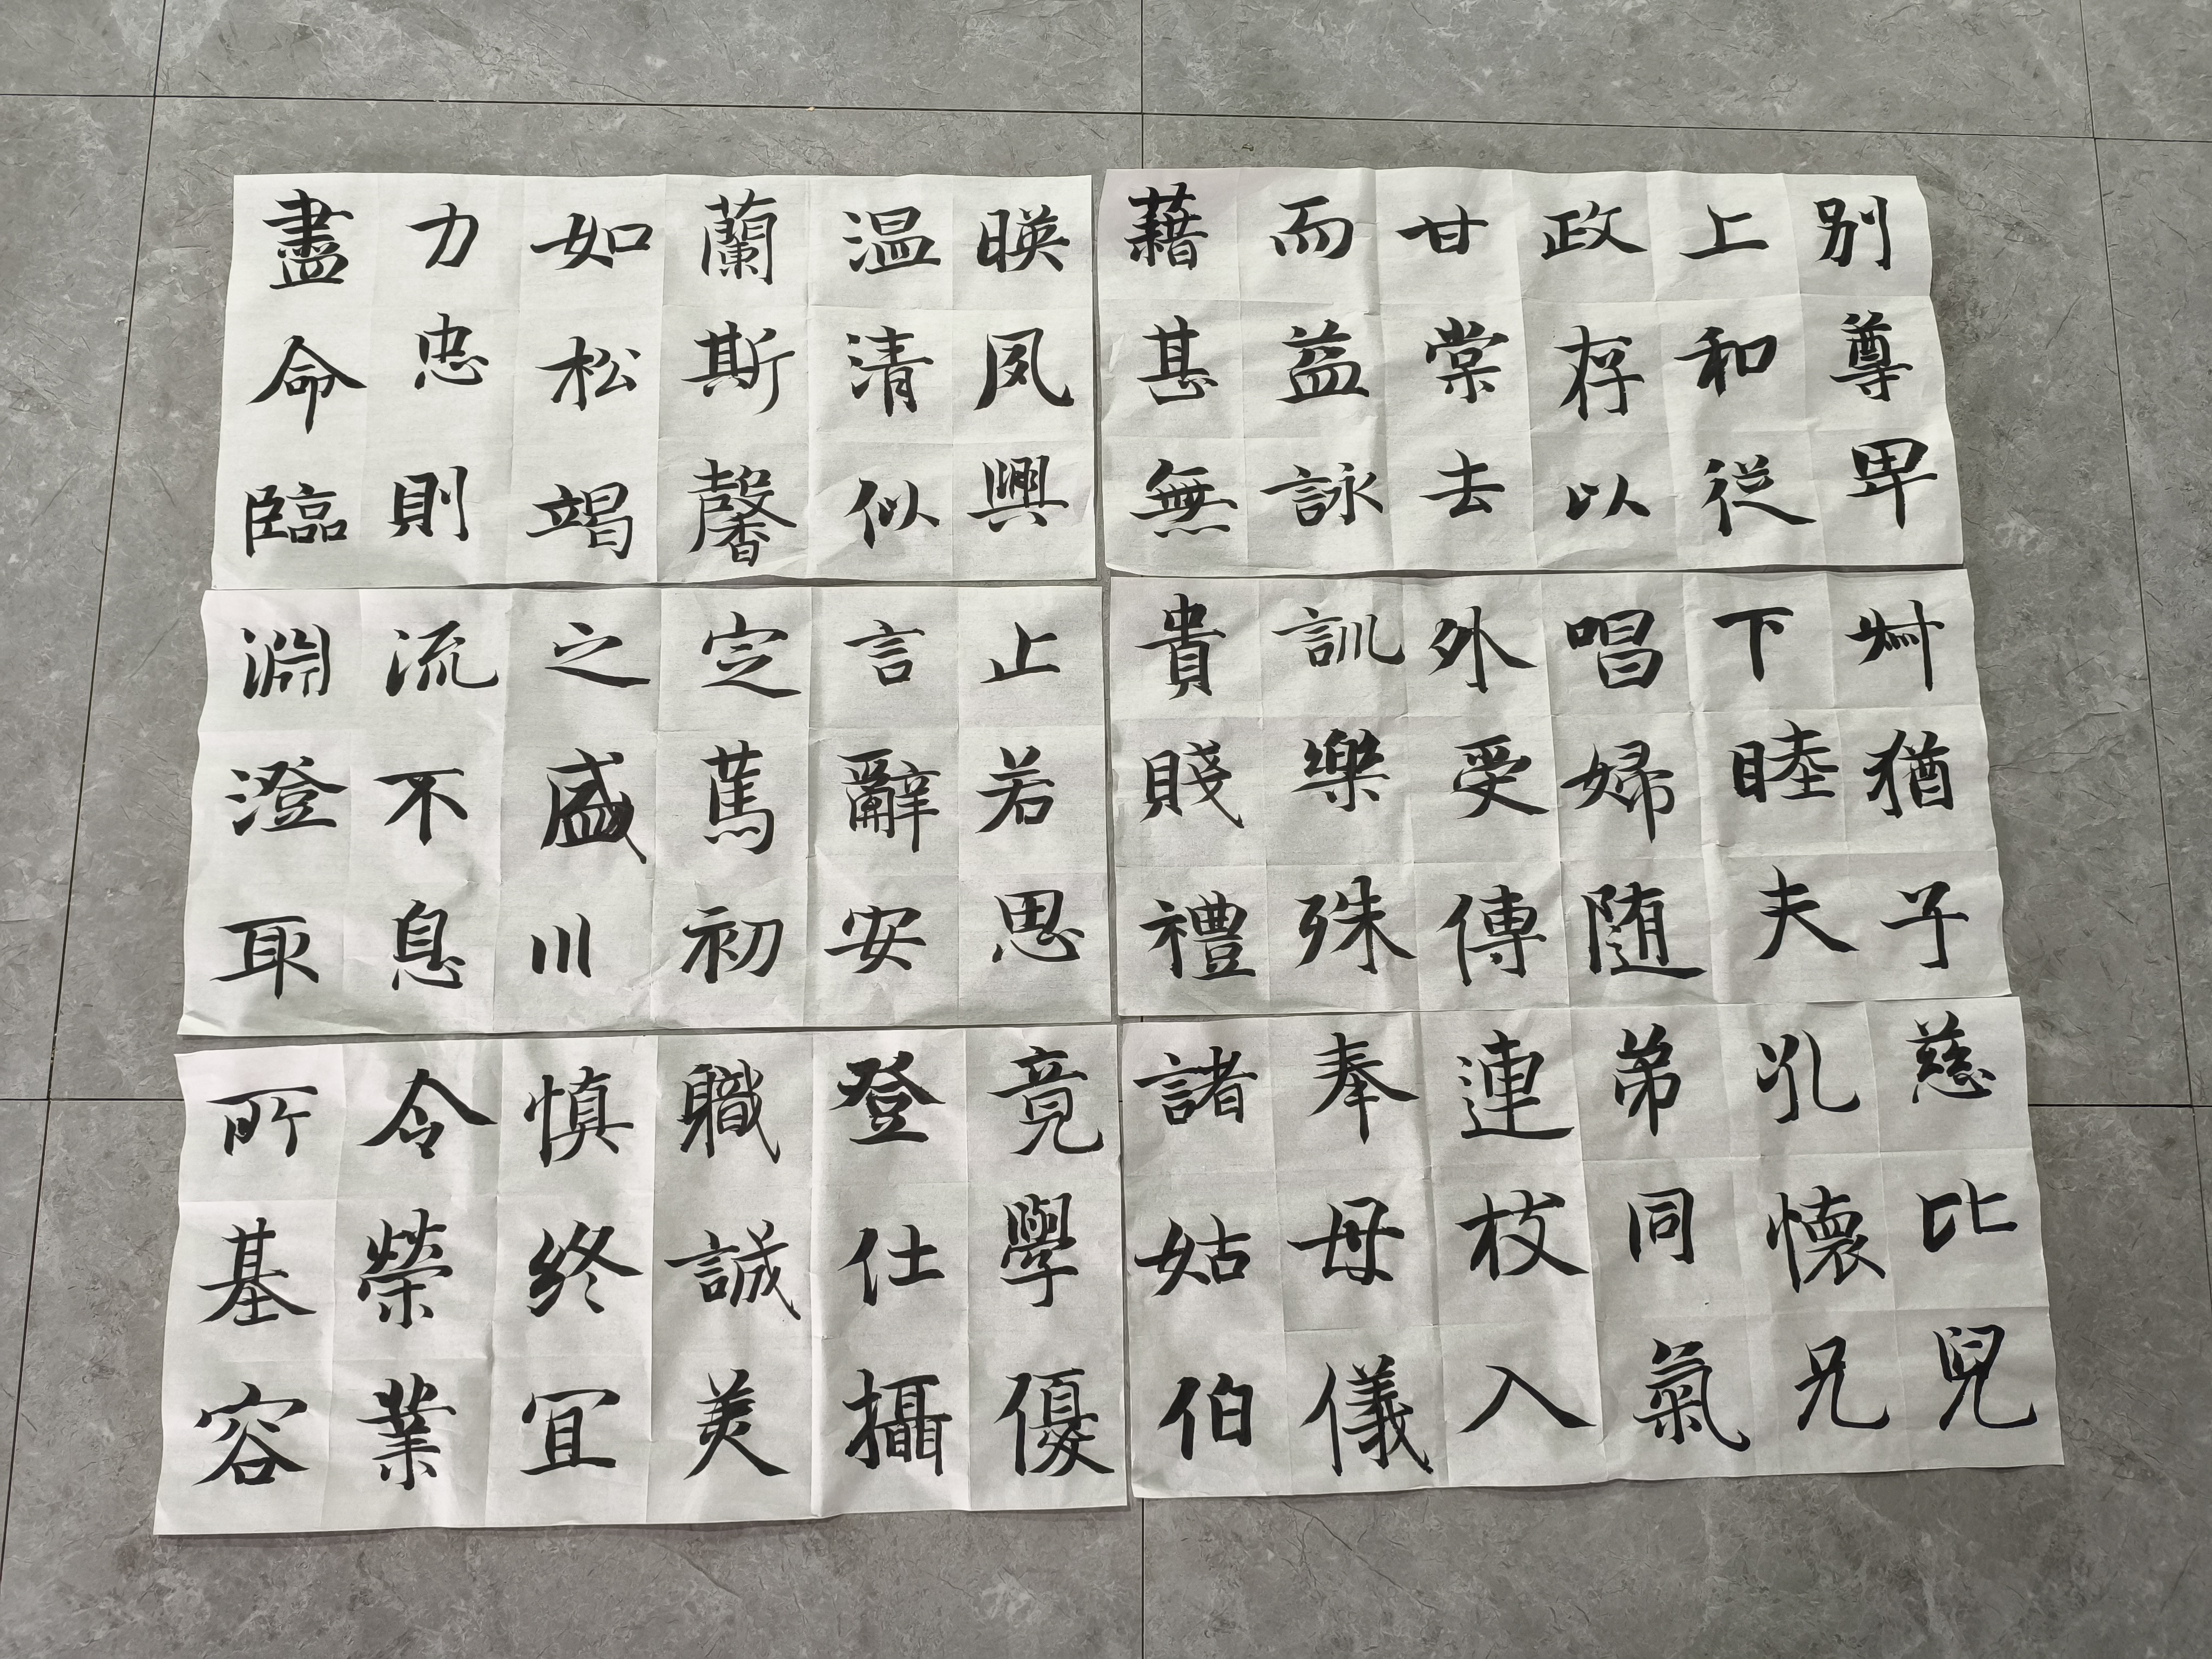 别尊卑
上和從
政存以
甘棠去
而益詠
藉甚無
叔猶子
下睦夫
唱婦随
外受傅
訓樂殊
貴賤禮
慈比兒
孔懷兄
弟同氣
連枝入
奉母儀
諸姑伯
暎夙興
温清似
蘭斯馨
如松竭
力忠則
盡命臨
止若思
言辭安
定篤初
之盛川
流不息
淵澄取
竟學優
登仕攝
職誠美
慎終宜
令榮業
所基容